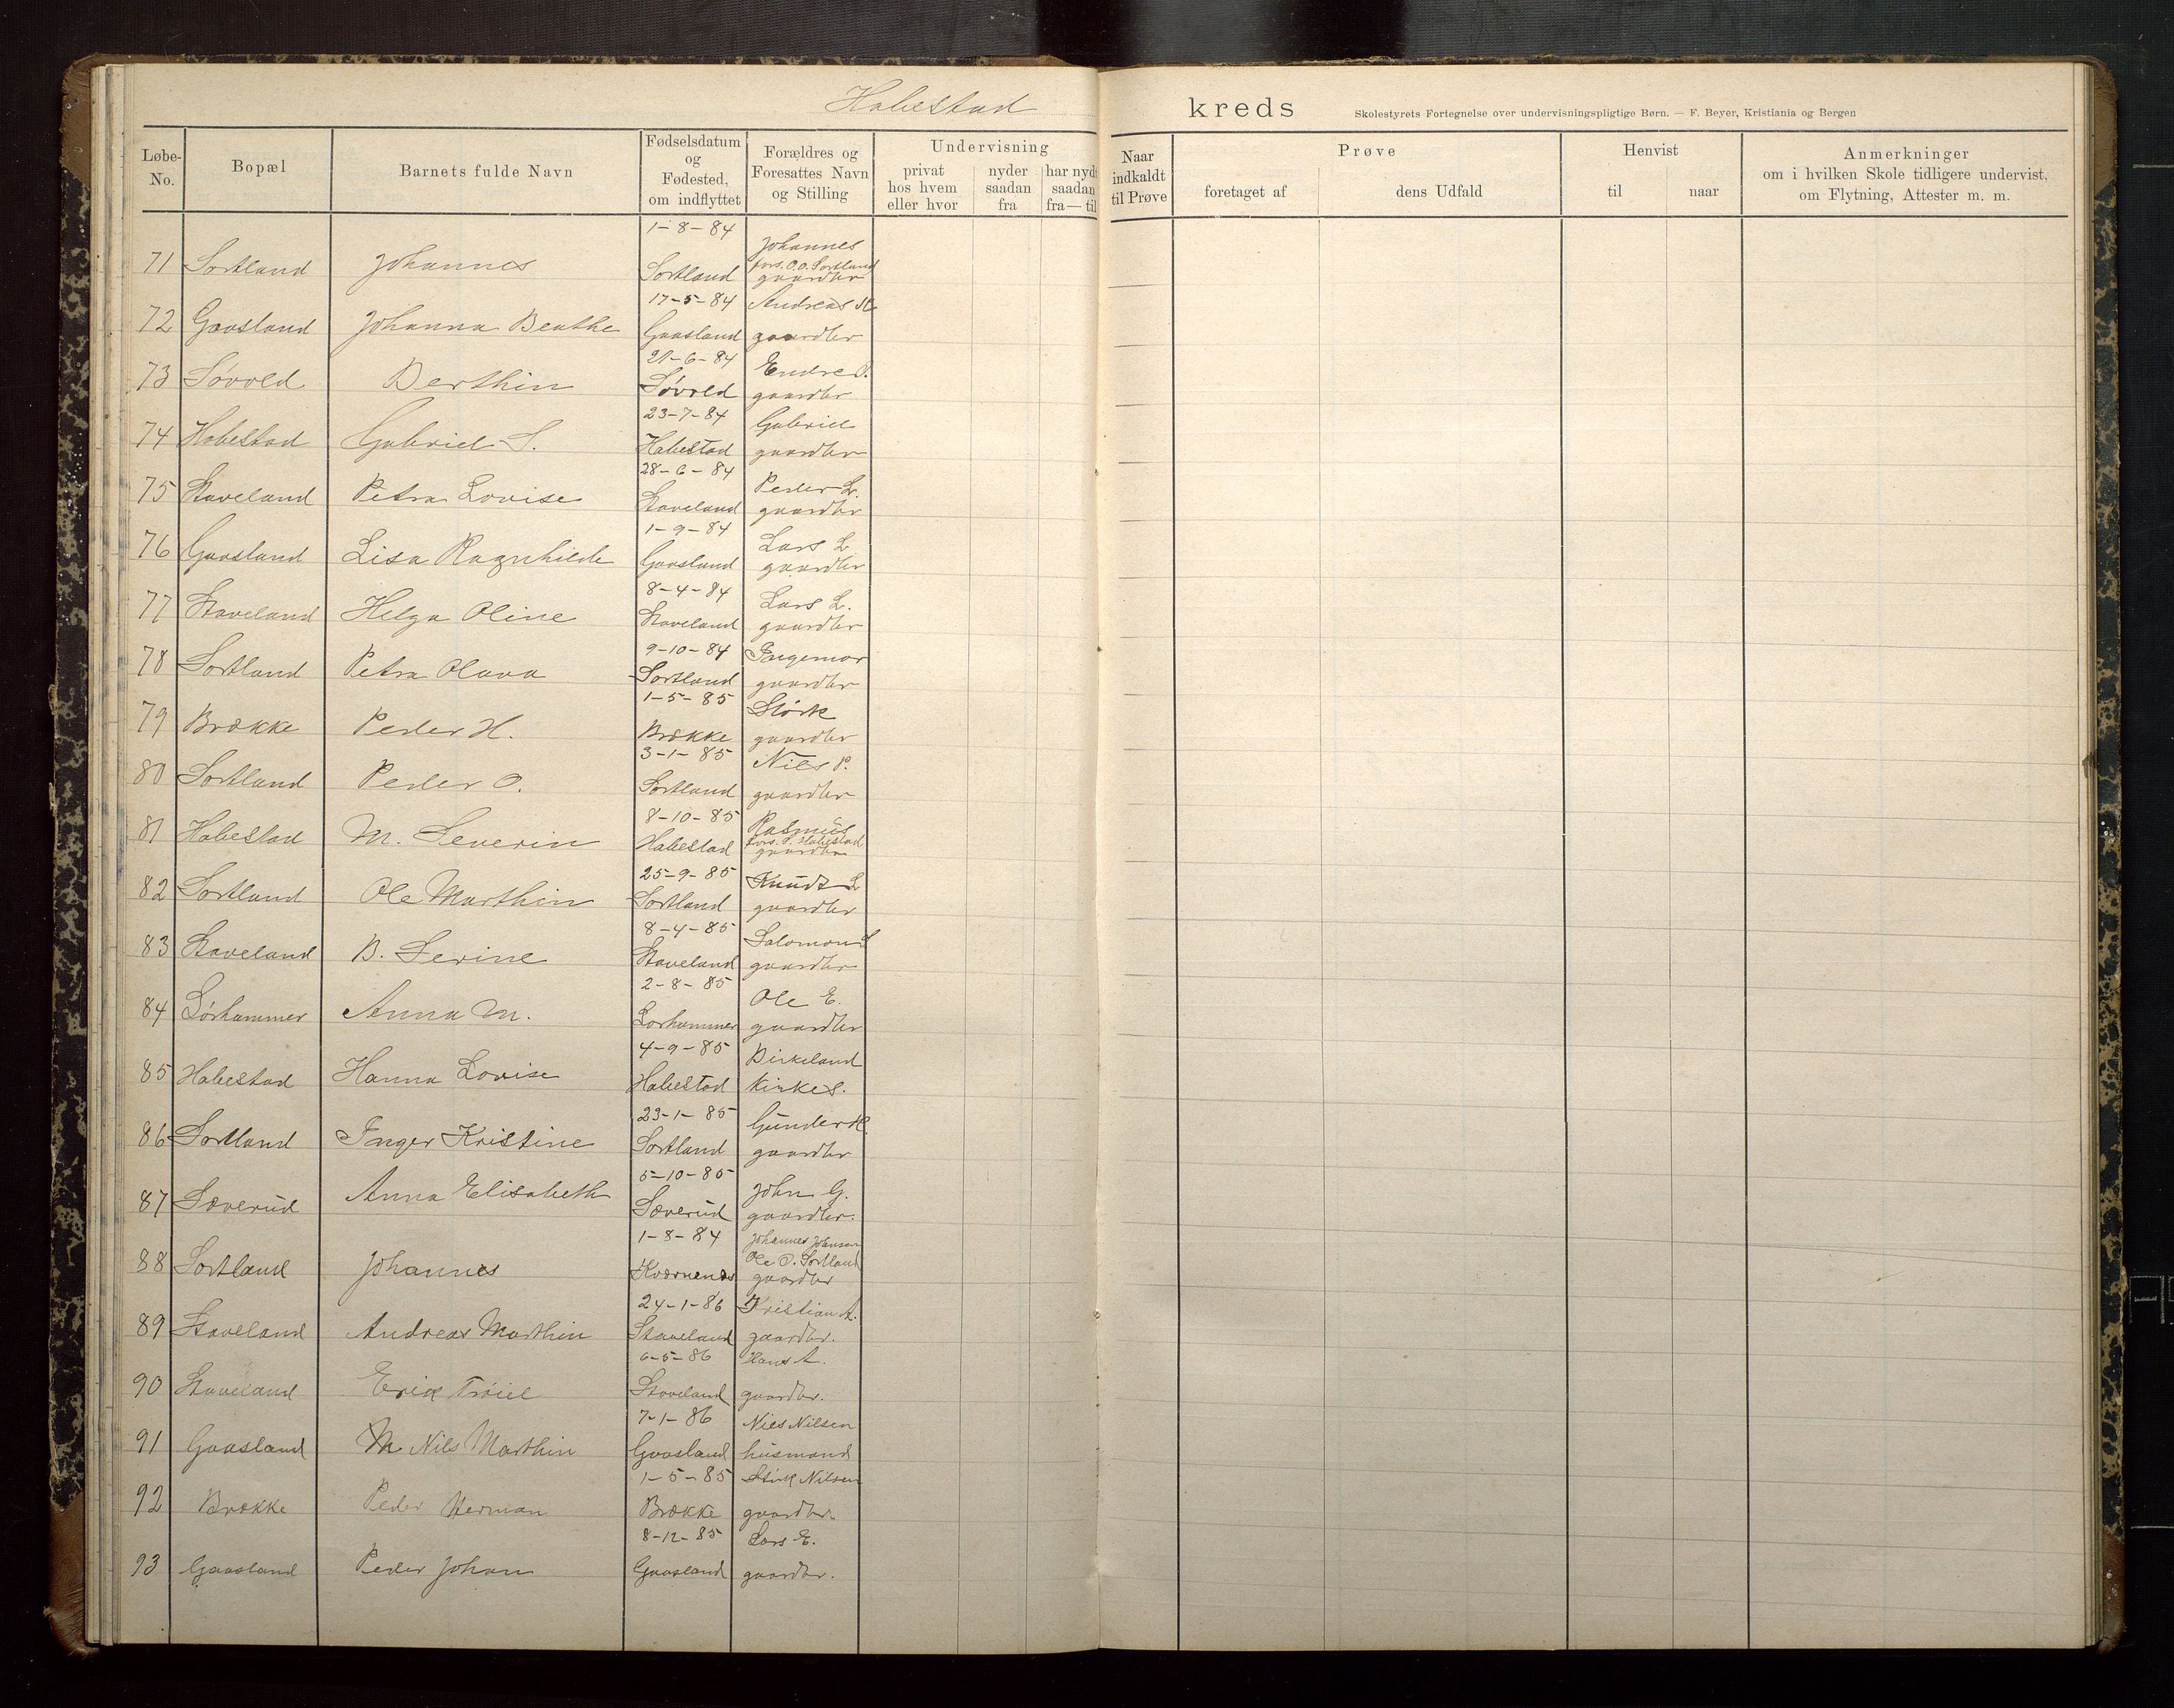 Habestad kreds Skolestyrets Fortegnelse over undervisningspligtige Børn. — F. Beyer, Kristiania og Bergen
Løbe-No. Bopæl Barnets fulde Navn Fødselsdatum og Fødested, om indflyttet Forældres og Foresattes Navn og Stilling Undervisning privat hos hvem eller hvor nyder saadan fra har nydt saadan fra — til Naar indkaldt til Prøve Prøve foretaget af dens Udfald Henvist til naar Anmerkninger om i hvilken Skole tidligere undervist, om Flytning, Attester m. m.
1-8-84 Johannes
fors. O.O. Sortland
71 Sortland Johannes Sortland gaardbr
17-5-84 Andreas
72 Gaasland Johanna Beathe Gaasland gaardbr
21-6-84 Endre S.
73 Søvold Berthin Søvold gaardbr
23-7-84 Gabriel
74 Habestad Gabriel S. Habestad gaardbr
28-6-84 Peder L.
75 Staveland Petra Lovise Staveland gaardbr
1-9-84 Lars L
76 Gaasland Lisa Ragnhilde Gaasland gaardbr
8-4-84 Lars L.
77 Staveland Helga Oline Staveland gaardbr
9-10-84 Ingemar
78 Sortland Petra Olava Sortland gaardbr
1-5-85 Størk
79 Brække Peder H. Brække gaardbr
3-1-85 Nils P.
80 Sortland Peder O. Sortland gaardbr
8-10-85 Rasmus
fors. S. Habestad
81 Habestad M. Severin Habestad gaardbr
25-9-85 Knudt L
82 Sortland Ole Marthin Sortland gaardbr
8-4-85 Salomon S
83 Staveland B. Serine Staveland gaardbr
2-8-85 Ole E.
84 Sørhammer Anna M. Sørhammer gaardbr
4-9-85 Birkeland
85 Habestad Hanna Lovise Habestad Kirkes.
23-1-85 Gunder
86 Sortland Inger Kristine Sortland gaardbr
5-10-85 John G.
87 Sæverud Anna Elisabeth Sæverud gaardbr.
1-8-84 Johannes Johansen
Ole O. Sortland
88 Sortland Johannes Kværnenes gaardbr
24-1-86 Kristian A.
89 Staveland Andreas Marthin Staveland gaardbr.
6-5-86 Hans A.
90 Staveland Erik Trøiel Staveland gaardbr.
7-1-86 Nils Nilsen
91 Gaasland M Nils Marthin Gaasland husmand
1-5-85 Størk Nilsen
92 Brække Peder Herman Brække gaardbr.
8-12-85 Lars E.
93 Gaasland Peder Johan Gaasland gaardbr.